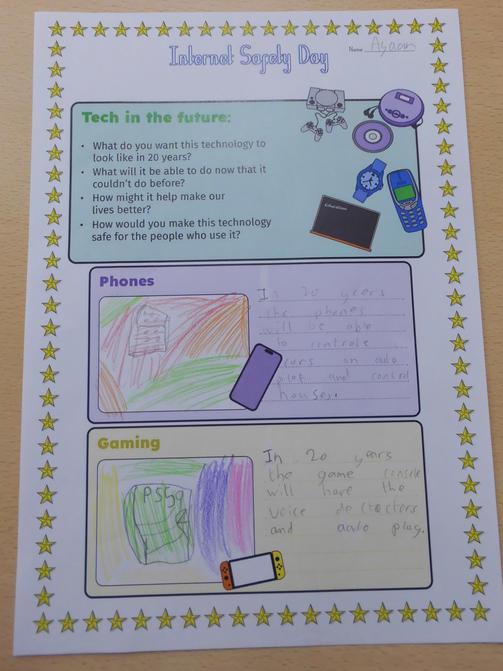 Internet Safety Day
Name Ayaan
Tech in the future:
• What do you want this technology to
look like in 20 years?
• What will it be able to do now that it
couldn't do before?
• How might it help make our
lives better?
• How would you make this technology
safe for the people who use it?
Phones
In 20 years
the phones
will be able
to controle
cars on auto
pilot and control
houses.
Gaming
In 20 years
the game console
will have the
voice detectors
and auto play.